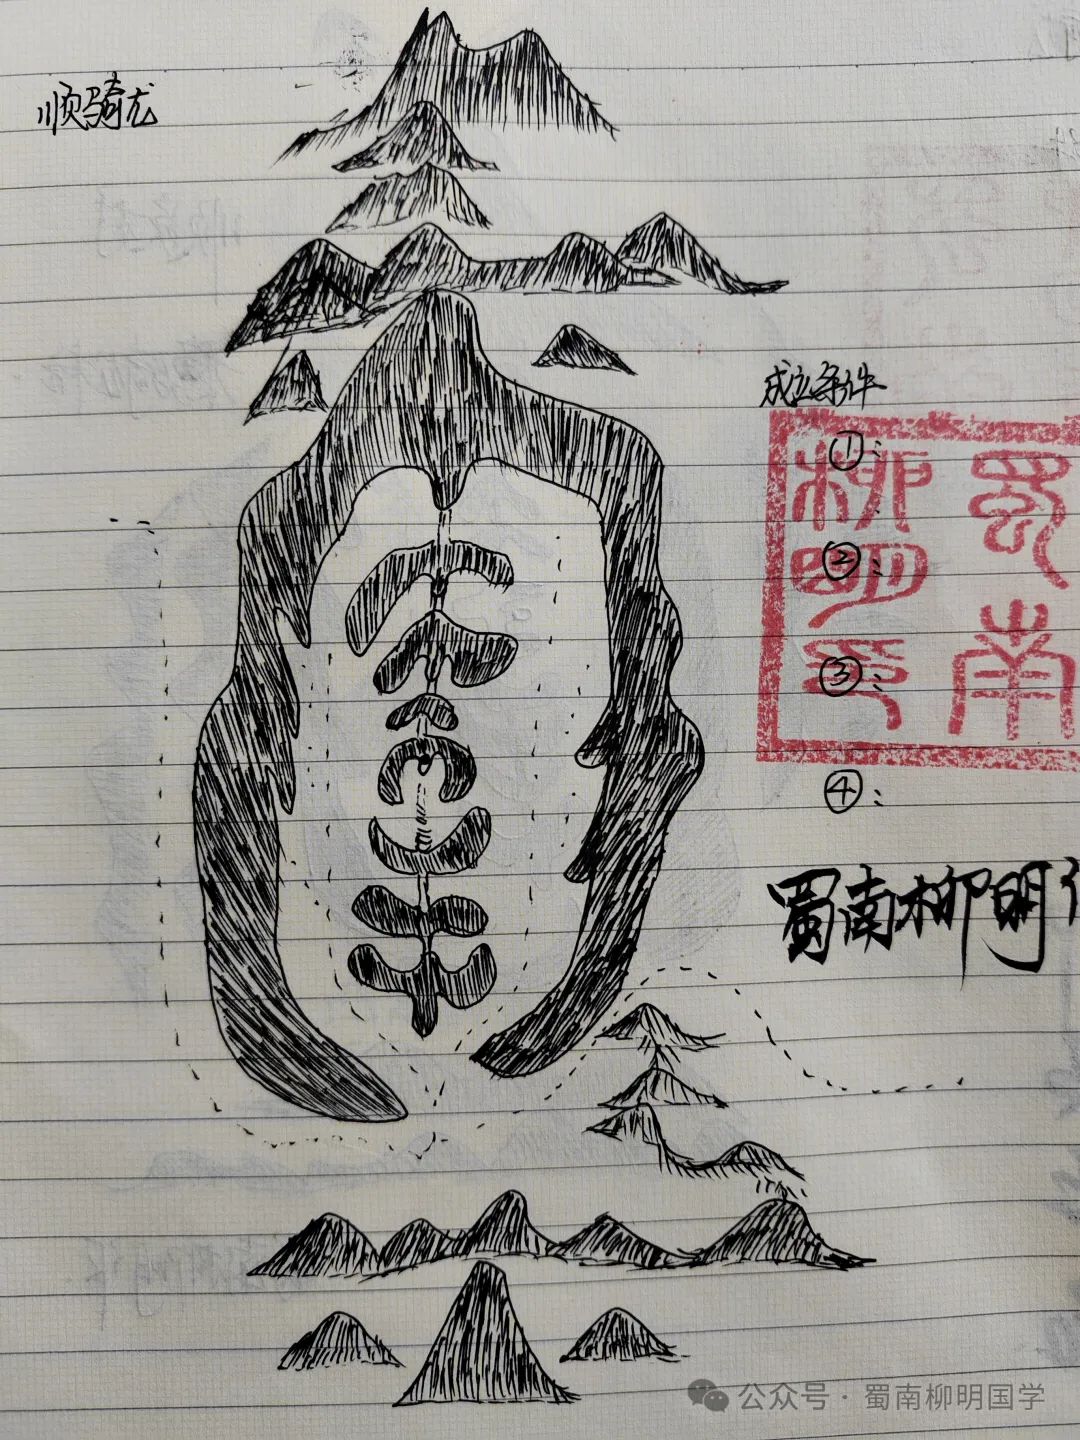 顺骑龙
成立条件
①：
②：
③：
④：
蜀南
柳明印
蜀南柳明
公众号·蜀南柳明国学